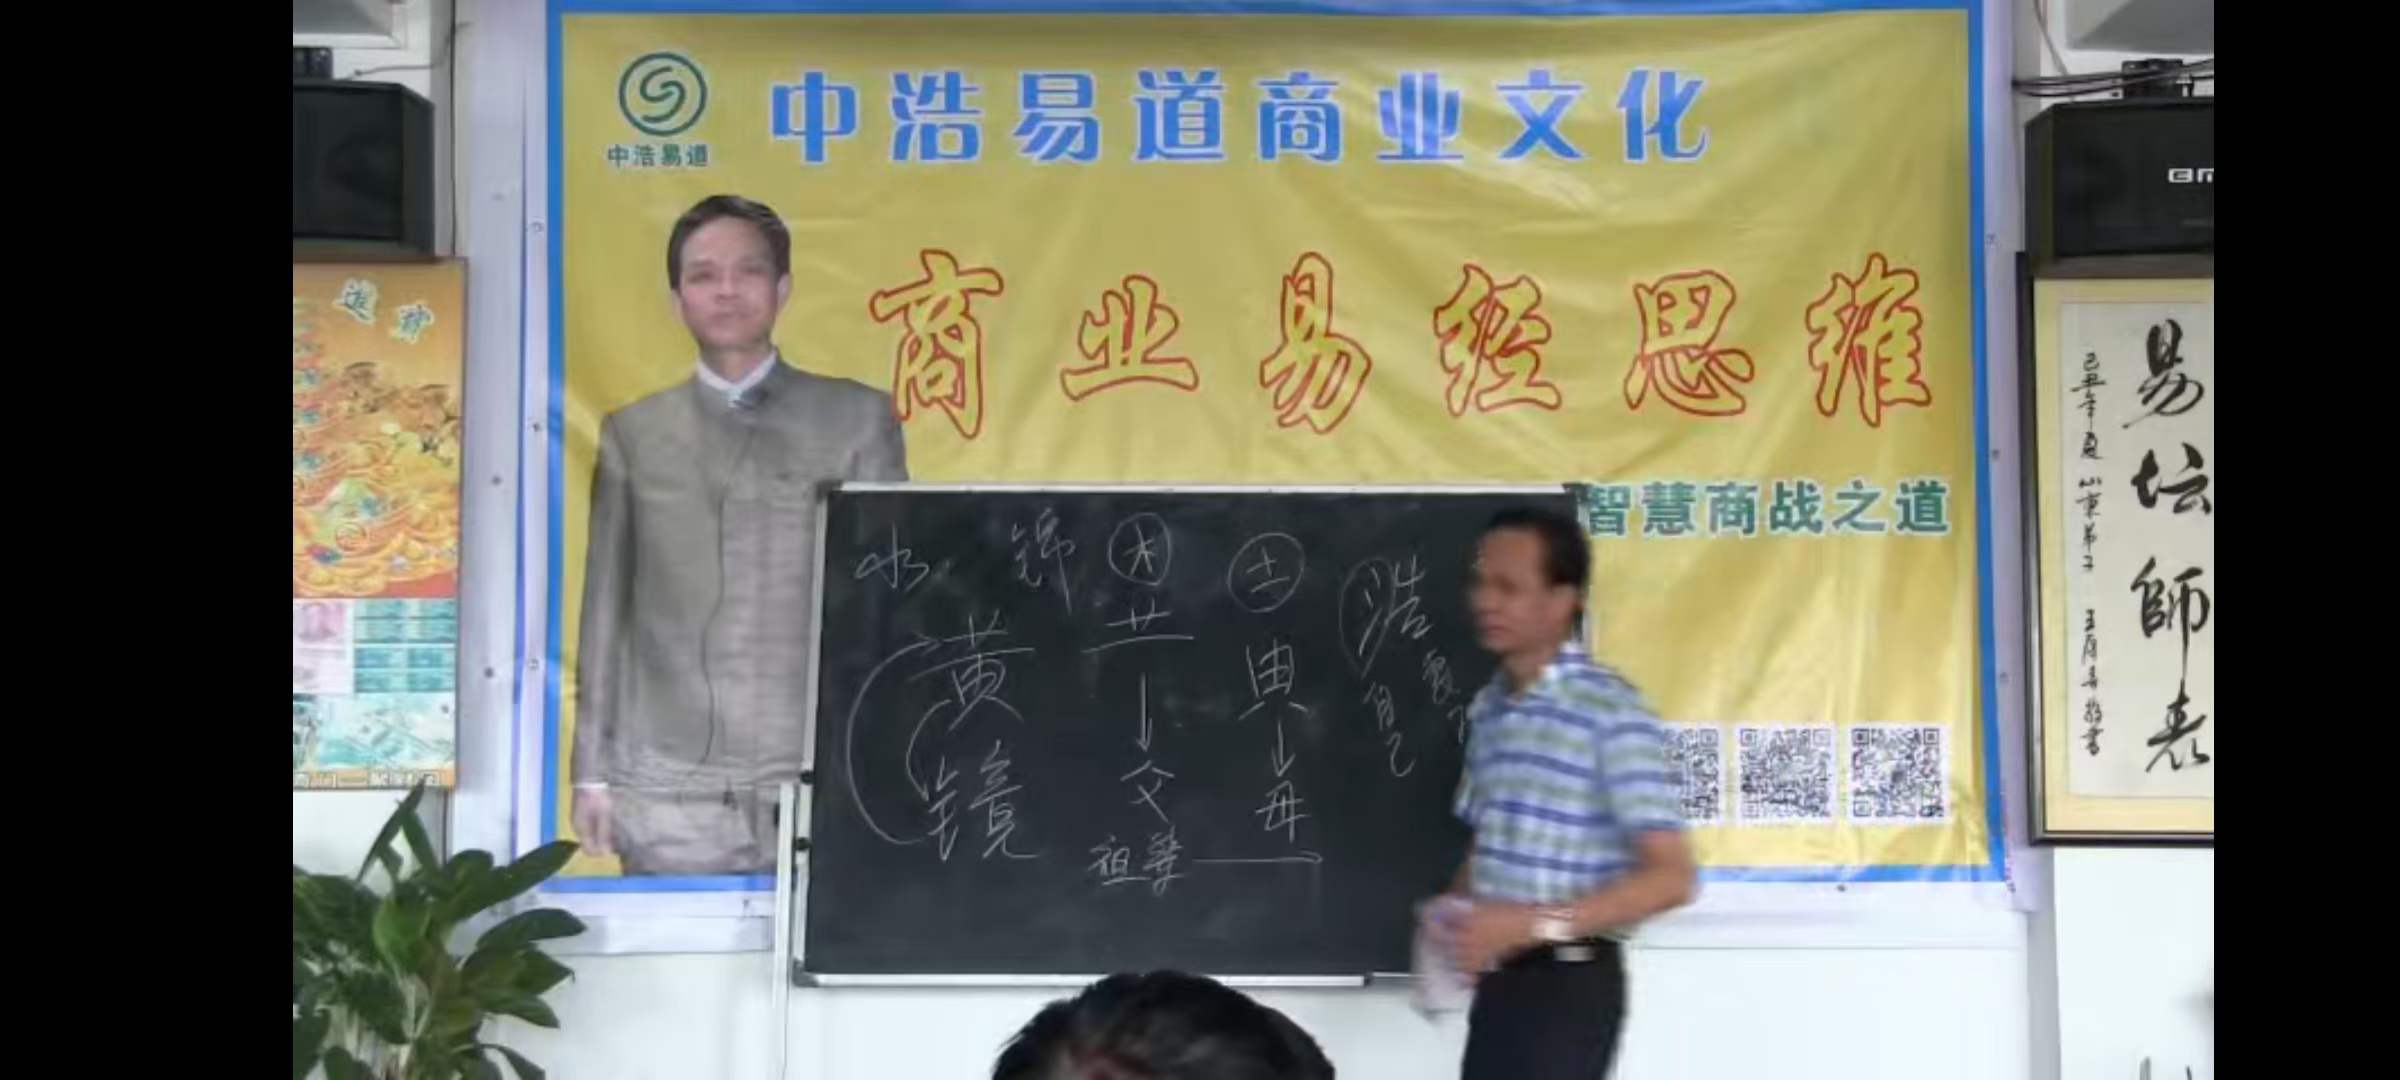 中浩易道商业文化
中浩易道
商业易经思维
智慧商战之道
水 锦 木 土 浩
黄
由
镜
父
母
自己
祖
進寶
易坛師表
己丑年夏 山東弟子